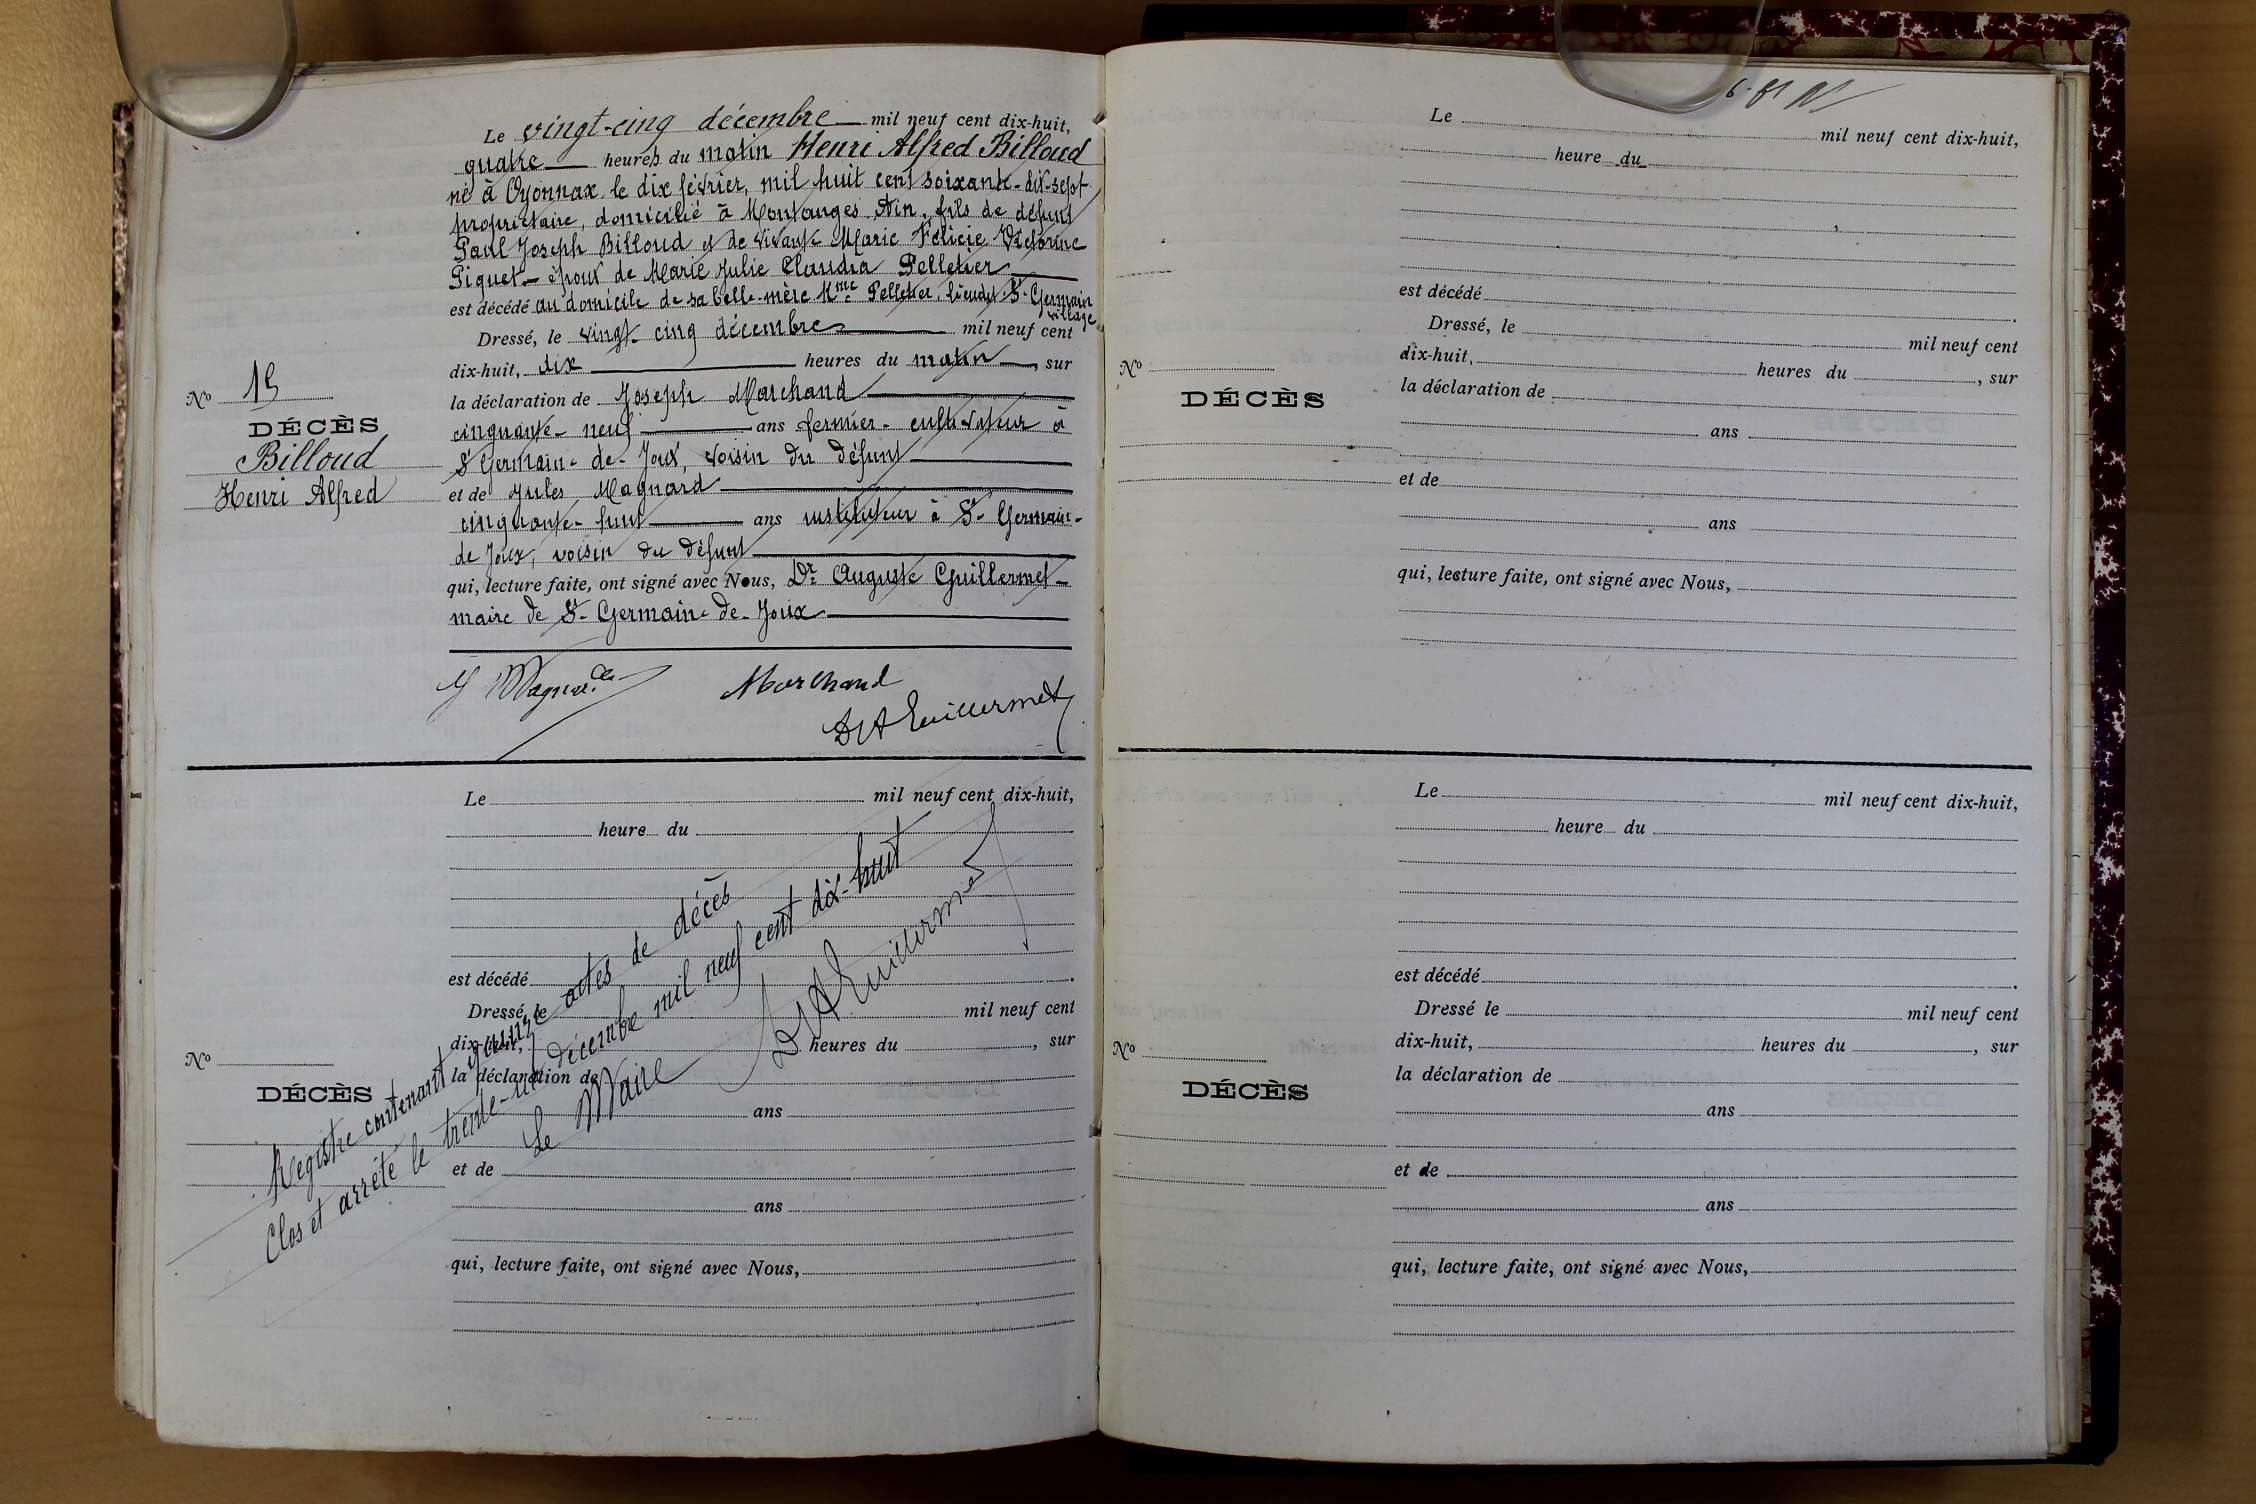 Le vingt-cinq décembre mil neuf cent dix-huit,
quatre heures du matin Henri Alfred Billoud
né à Oyonnax le dix février, mil huit cent soixante-dix-sept
propriétaire, domicilié à Montanges Ain, fils de défunt
Paul Joseph Billoud et de vivante Marie Félicie Victorine
Piquet - époux de Marie Julie Claudia Pelletier
est décédé au domicile de sa belle-mère Mme Pelletier, lieudit St-Germain
village
Dressé, le vingt-cinq décembre mil neuf cent
dix-huit, dix heures du matin, sur
la déclaration de Joseph Marchand
cinquante-neuf ans fermier-cultivateur à
St Germain-de-Joux, voisin du défunt
et de Jules Magnard
cinquante-huit ans instituteur à St-Germain-
de Joux, voisin du défunt
qui, lecture faite, ont signé avec Nous, Dr Auguste Guillermet-
maire de St-Germain-de-Joux
No 15
DÉCÈS
Billoud
Henri Alfred
J Magnard
Marchand
Dr A Guillermet
Le mil neuf cent dix-huit,
heure du
est décédé
Dressé, le mil neuf cent
dix-huit, heures du , sur
la déclaration de
ans
et de
ans
qui, lecture faite, ont signé avec Nous,
No
DÉCÈS
Registre contenant quinze actes de décès
Clos et arrêté le trente-un décembre mil neuf cent dix-huit
Le Maire
Dr A Guillermet
Le mil neuf cent dix-huit,
heure du
est décédé
Dressé, le mil neuf cent
dix-huit, heures du , sur
la déclaration de
ans
et de
ans
qui, lecture faite, ont signé avec Nous,
No
DÉCÈS
Le mil neuf cent dix-huit,
heure du
est décédé
Dressé le mil neuf cent
dix-huit, heures du , sur
la déclaration de
ans
et de
ans
qui, lecture faite, ont signé avec Nous,
No
DÉCÈS